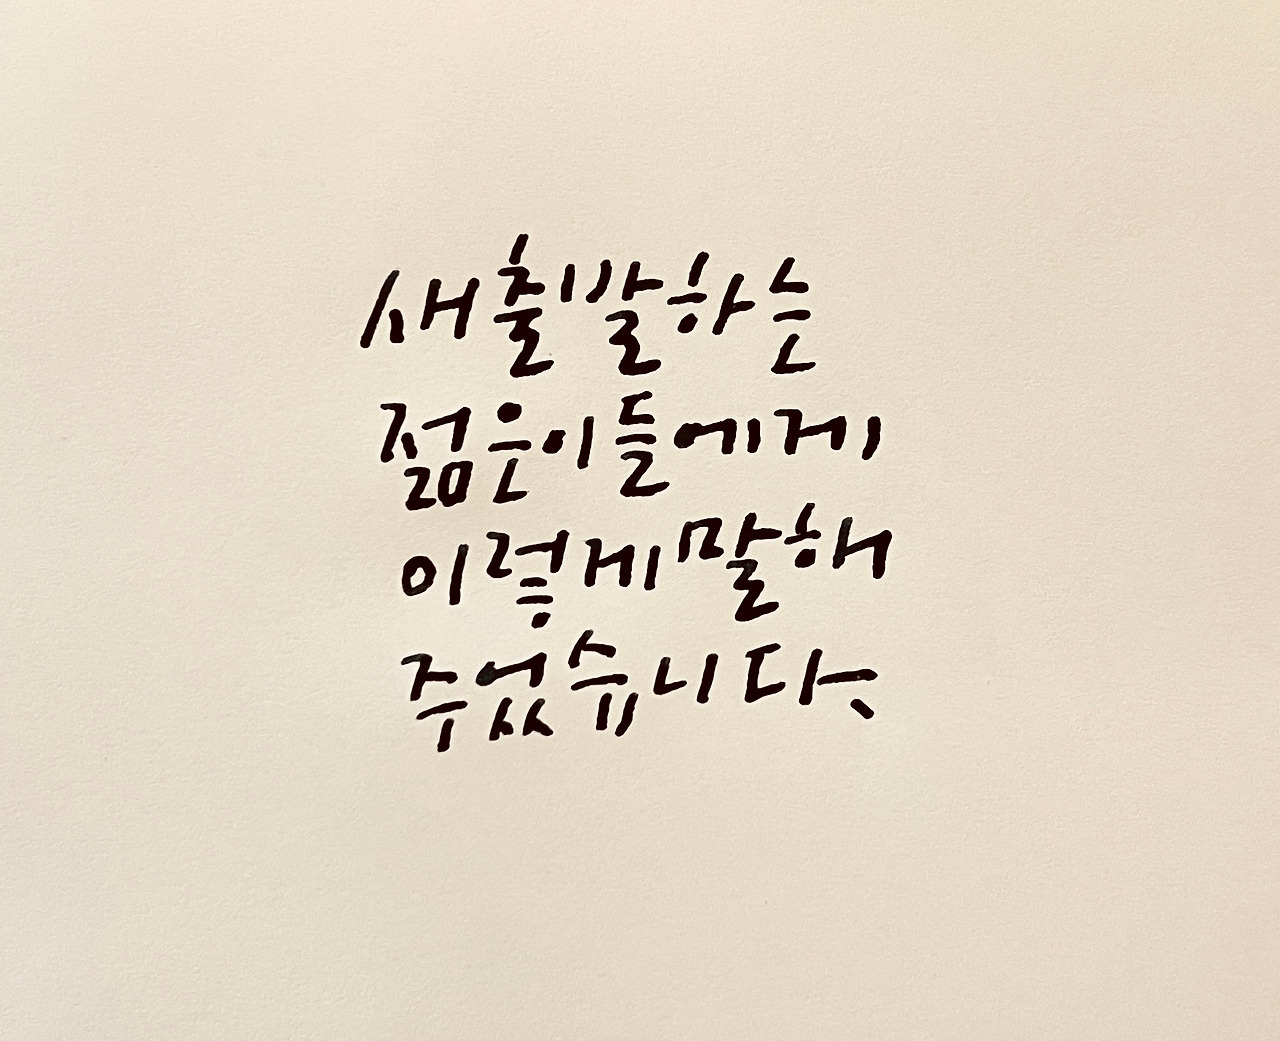 새출발하는
젊은이들에게
이렇게 말해
주었습니다.